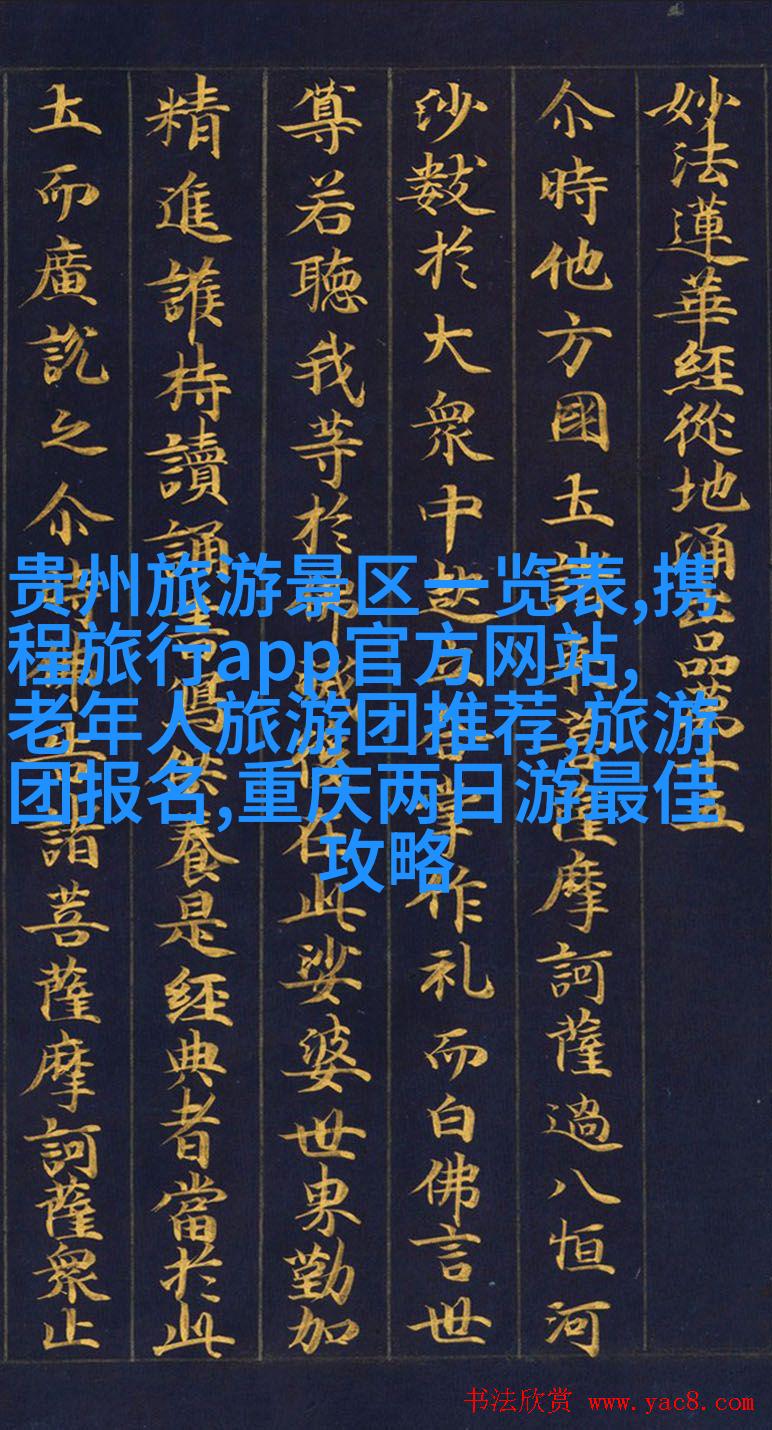 妙法蓮華經從地涌出品第十五
尒時他方國土諸來菩薩摩訶薩過八恒河
沙數於大衆中起立合掌作礼而白佛言世
尊若聽我等於佛滅後在此娑婆世界勤加
精進護持讀誦書寫供養是經典者當於此
土而廣說之尒時佛告諸菩薩摩訶薩衆止
贵州旅游景区一览表,携
程旅行app官方网站,
老年人旅游团推荐,旅游
团报名,重庆两日游最佳
攻略
书法欣赏 www.yac8.com